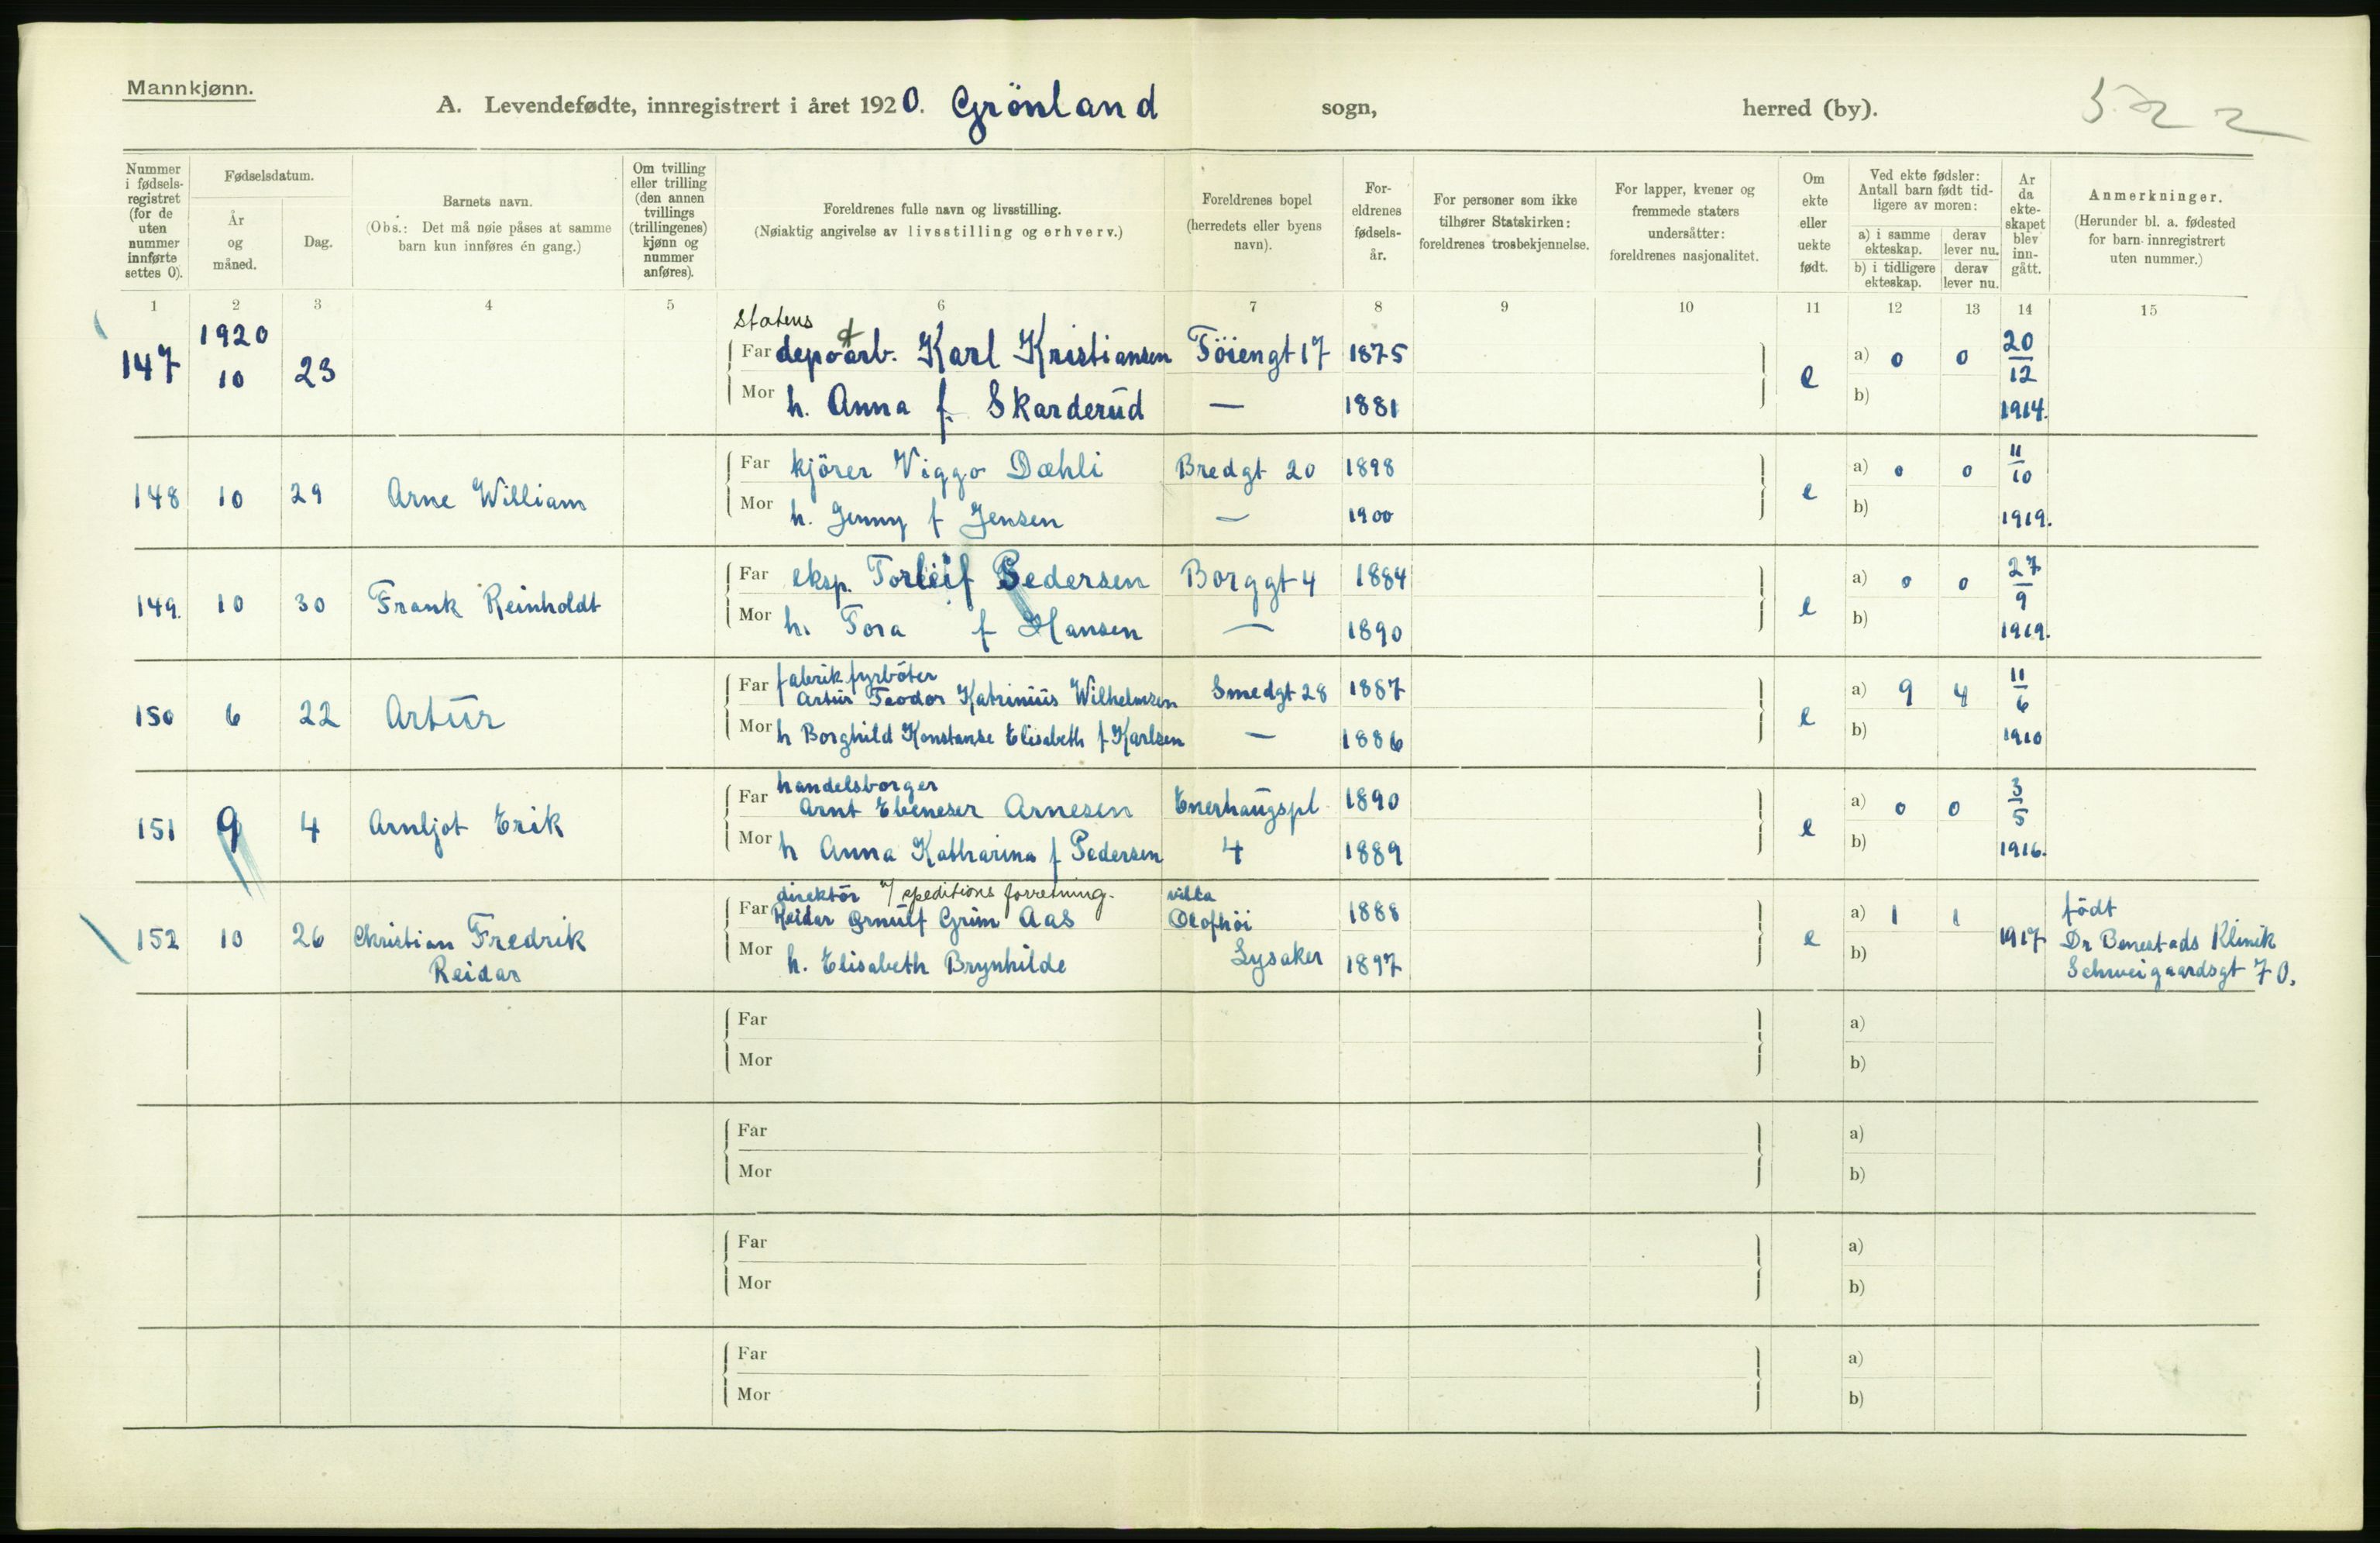 Mannkjønn.
A. Levendefødte, innregistrert i året 1920. Grönland sogn, herred (by). 522
Nummer i fødsels-registret (for de uten nummer innførte settes 0).
Fødselsdatum.
År og måned.
Dag.
Barnets navn.
(Obs.: Det må nøie påses at samme barn kun innføres én gang.)
Om tvilling eller trilling (den annen tvillings (trillingenes) kjønn og nummer anføres).
Foreldrenes fulle navn og livsstilling.
(Nøiaktig angivelse av livsstilling og erhverv.)
Foreldrenes bopel (herredets eller byens navn).
For-eldrenes fødsels-år.
For personer som ikke tilhører Statskirken: foreldrenes trosbekjennelse.
For lapper, kvener og fremmede staters undersåtter: foreldrenes nasjonalitet.
Om ekte eller uekte født.
Ved ekte fødsler: Antall barn født tid-ligere av moren:
a) i samme ekteskap. derav lever nu.
b) i tidligere ekteskap. derav lever nu.
År da ekte-skapet blev inn-gått.
Anmerkninger.
(Herunder bl. a. fødested for barn innregistrert uten nummer.)
1 2 3 4 5 6 7 8 9 10 11 12 13 14 15
147 1920 10 23
Statens
Far depotarb. Karl Kristiansen Töiengt 17 1875
Mor h. Anna f. Skarderud — 1881
e a) 0 0 b) 20/12 1914.
148 10 29 Arne William
Far kjörer Viggo Dæhli Bredgt 20 1898
Mor h. Jenny f Jensen — 1900
e a) 0 0 b) 11/10 1919.
149. 10 30 Frank Reinholdt
Far eksp. Torleif Pedersen Borggt 4 1884
Mor h. Tora f Hansen — 1890
e a) 0 0 b) 27/9 1919.
150 6 22 Artur
Far fabrikfyrböter
Artur Teodor Katrinius Wilhelmsen Smedgt 28 1887
Mor h Borghild Konstanse Elisabeth f Karlsen — 1886
e a) 9 4 b) 11/6 1910
151 9 4 Arnljot Erik
Far handelsborger
Arnt Ebeneser Arnesen Enerhaugspl. 1890
Mor h Anna Katharina f Pedersen 4 1889
e a) 0 0 b) 3/5 1916.
152 10 26 Christian Fredrik
Reidar
Far direktör v/ speditions forretning.
Reidar Ørnulf Grim Aas villa Olofhöi 1888
Mor h. Elisabeth Brynhilde Lysaker 1897
e a) 1 1 b) 1917
födt
Dr Benestads Klinik
Schweigaardsgt 70.
Far a)
Mor b)
Far a)
Mor b)
Far a)
Mor b)
Far a)
Mor b)